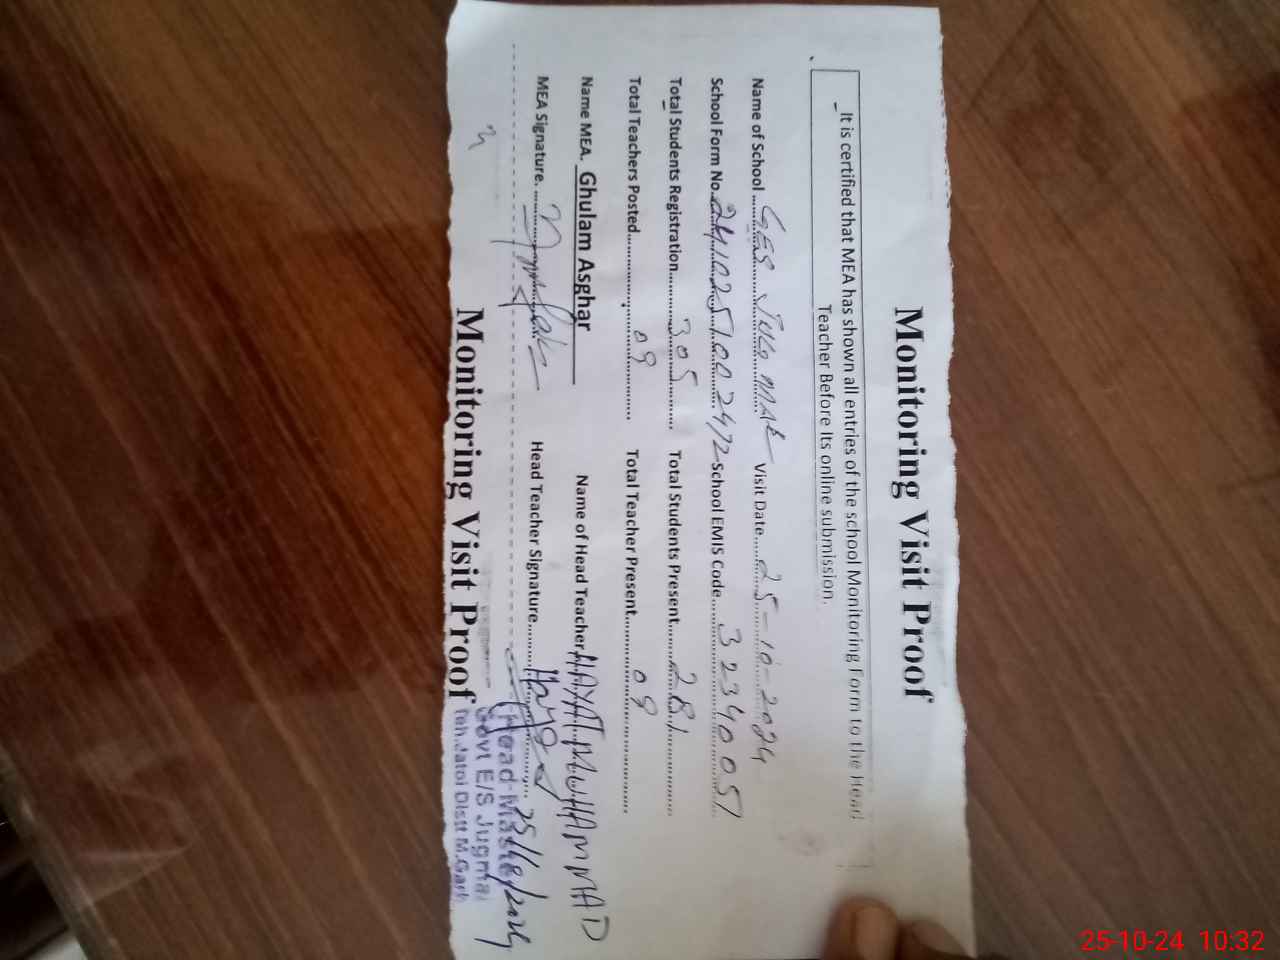 Monitoring Visit Proof
It is certified that MEA has shown all entries of the school Monitoring Form to the Head
Teacher Before Its online submission.
Name of School GES JUG MAL Visit Date 25-10-2024
School Form No. 2410251002472 School EMIS Code 32340051
Total Students Registration 305 Total Students Present 281
Total Teachers Posted 09 Total Teacher Present 09
Name MEA. Ghulam Asghar Name of Head Teacher HAYAT MUHAMMAD
MEA Signature. Head Teacher Signature 25/10/2024
Head Master
Govt E/S Jugmal
Teh.Jatoi Distt M.Garh
Monitoring Visit Proof
25-10-24 10:32